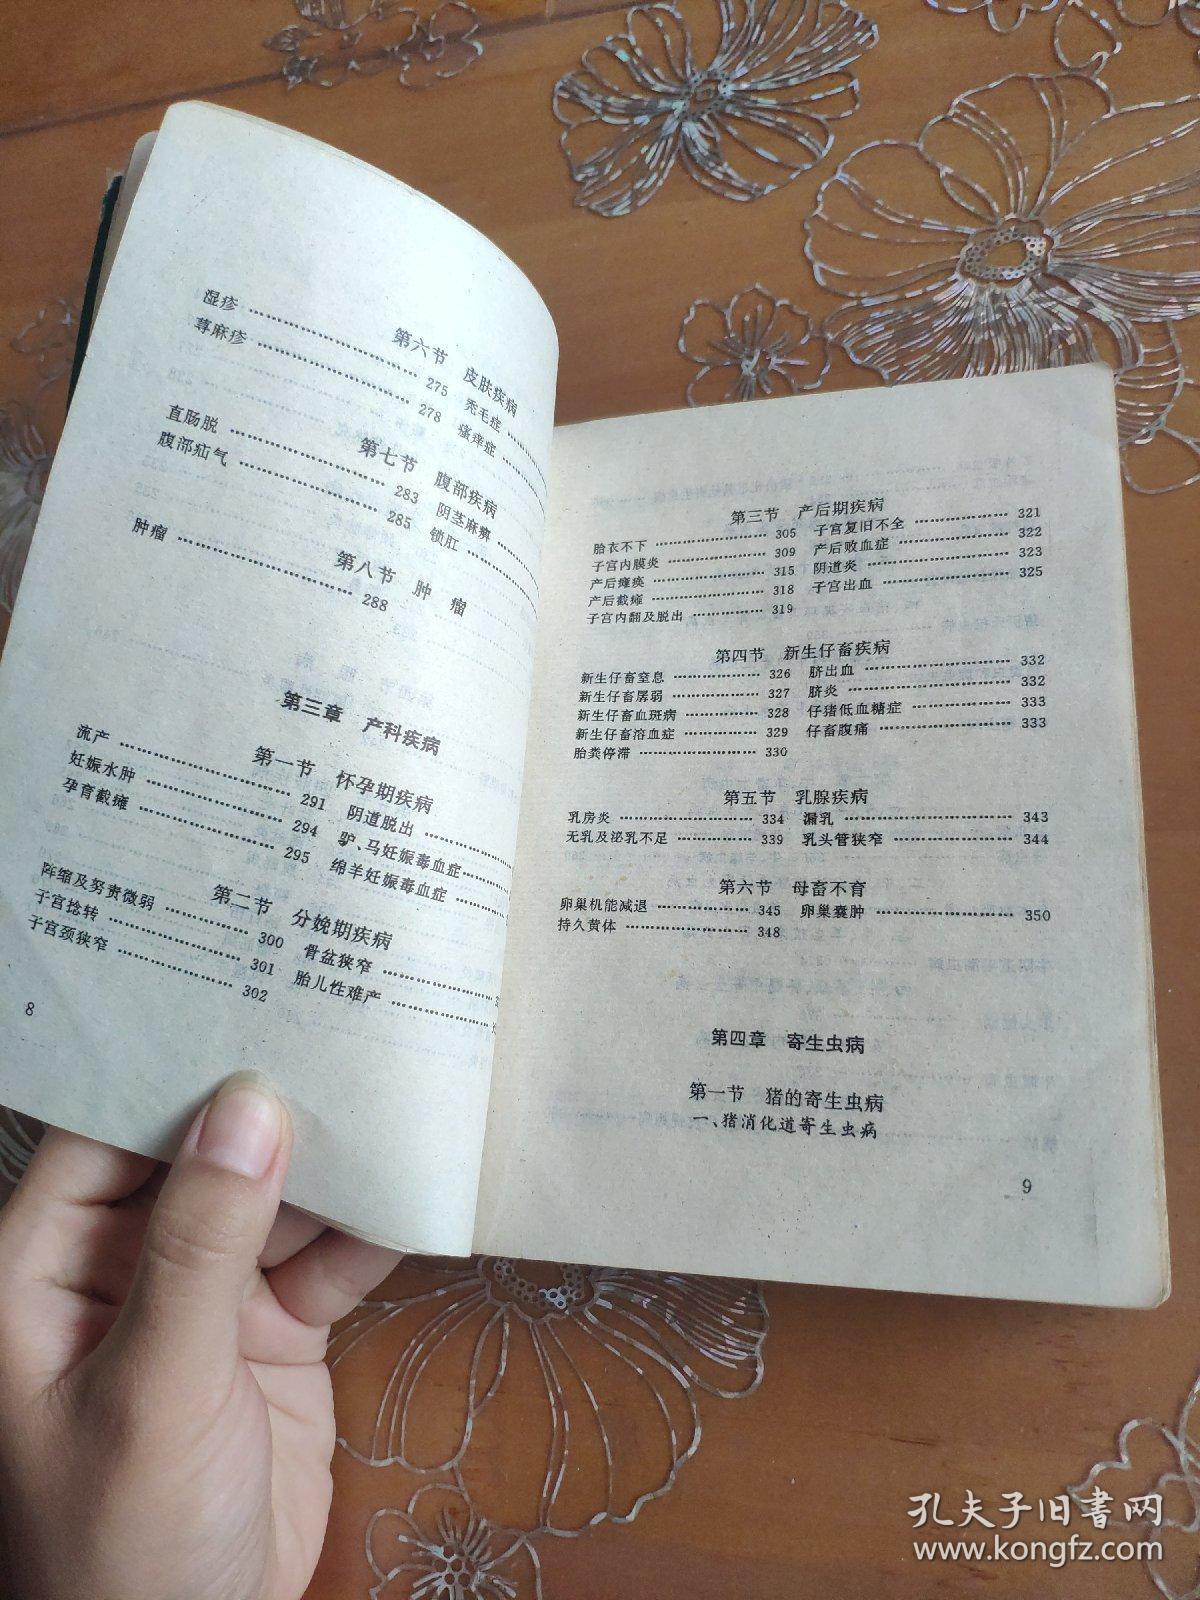 第六节 皮肤疾病
湿疹 275 秃毛症
荨麻疹 278 瘙痒症
第七节 腹部疾病
直肠脱 283 阴茎麻痹
腹部疝气 285 锁肛
第八节 肿瘤
肿瘤 288
第三章 产科疾病
第一节 怀孕期疾病
流产 291 阴道脱出
妊娠水肿 294 驴、马妊娠毒血症
孕育截瘫 295 绵羊妊娠毒血症
第二节 分娩期疾病
阵缩及努责微弱 300 骨盆狭窄
子宫捻转 301 胎儿性难产
子宫颈狭窄 302
8
第三节 产后期疾病
胎衣不下 305 子宫复旧不全 321
子宫内膜炎 309 产后败血症 322
产后瘫痪 315 阴道炎 323
产后截瘫 318 子宫出血 325
子宫内翻及脱出 319
第四节 新生仔畜疾病
新生仔畜窒息 326 脐出血 332
新生仔畜孱弱 327 脐炎 332
新生仔畜血斑病 328 仔猪低血糖症 333
新生仔畜溶血症 329 仔畜腹痛 333
胎粪停滞 330
第五节 乳腺疾病
乳房炎 334 漏乳 343
无乳及泌乳不足 339 乳头管狭窄 344
第六节 母畜不育
卵巢机能减退 345 卵巢囊肿 350
持久黄体 348
第四章 寄生虫病
第一节 猪的寄生虫病
一、猪消化道寄生虫病
9
孔夫子旧书网
www.kongfz.com